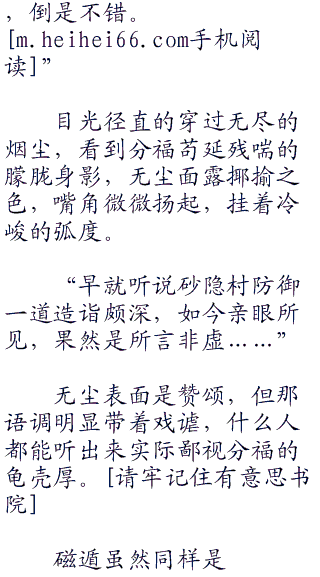 ，倒是不错。
[m.heihei66.com手机阅
读]”
目光径直的穿过无尽的
烟尘，看到分福苟延残喘的
朦胧身影，无尘面露揶揄之
色，嘴角微微扬起，挂着冷
峻的弧度。
“早就听说砂隐村防御
一道造诣颇深，如今亲眼所
见，果然是所言非虚……”
无尘表面是赞颂，但那
语调明显带着戏谑，什么人
都能听出来实际鄙视分福的
龟壳厚。[请牢记住有意思书
院]
磁遁虽然同样是